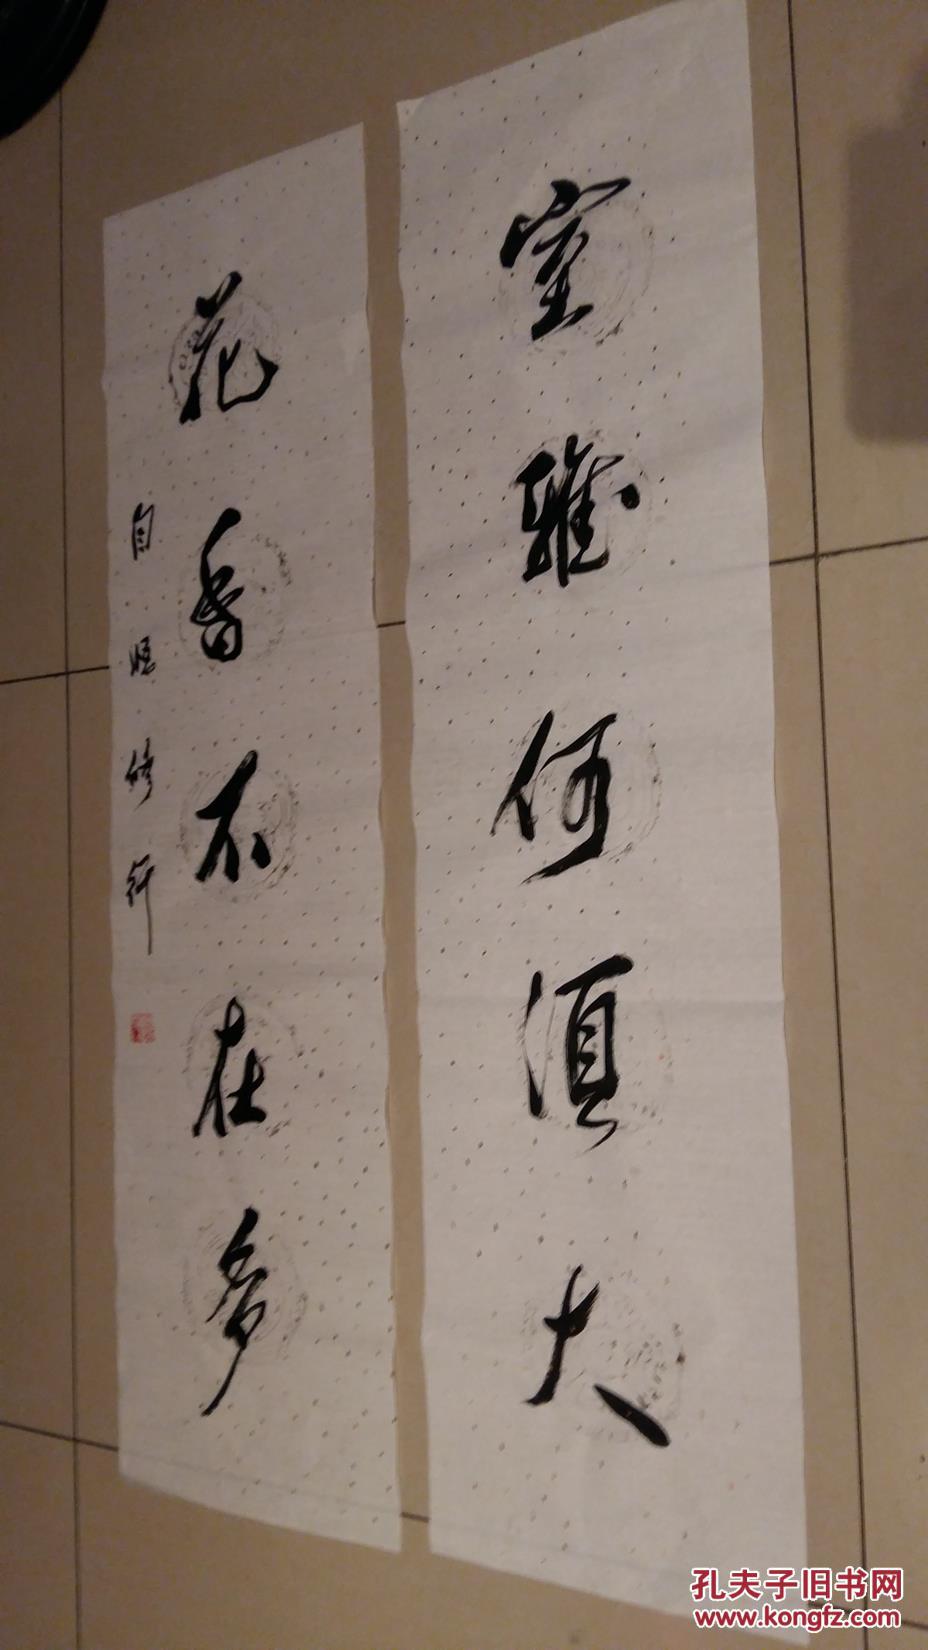 室雅何須大
花香不在多
自 修行
孔夫子旧书网
www.kongfz.com